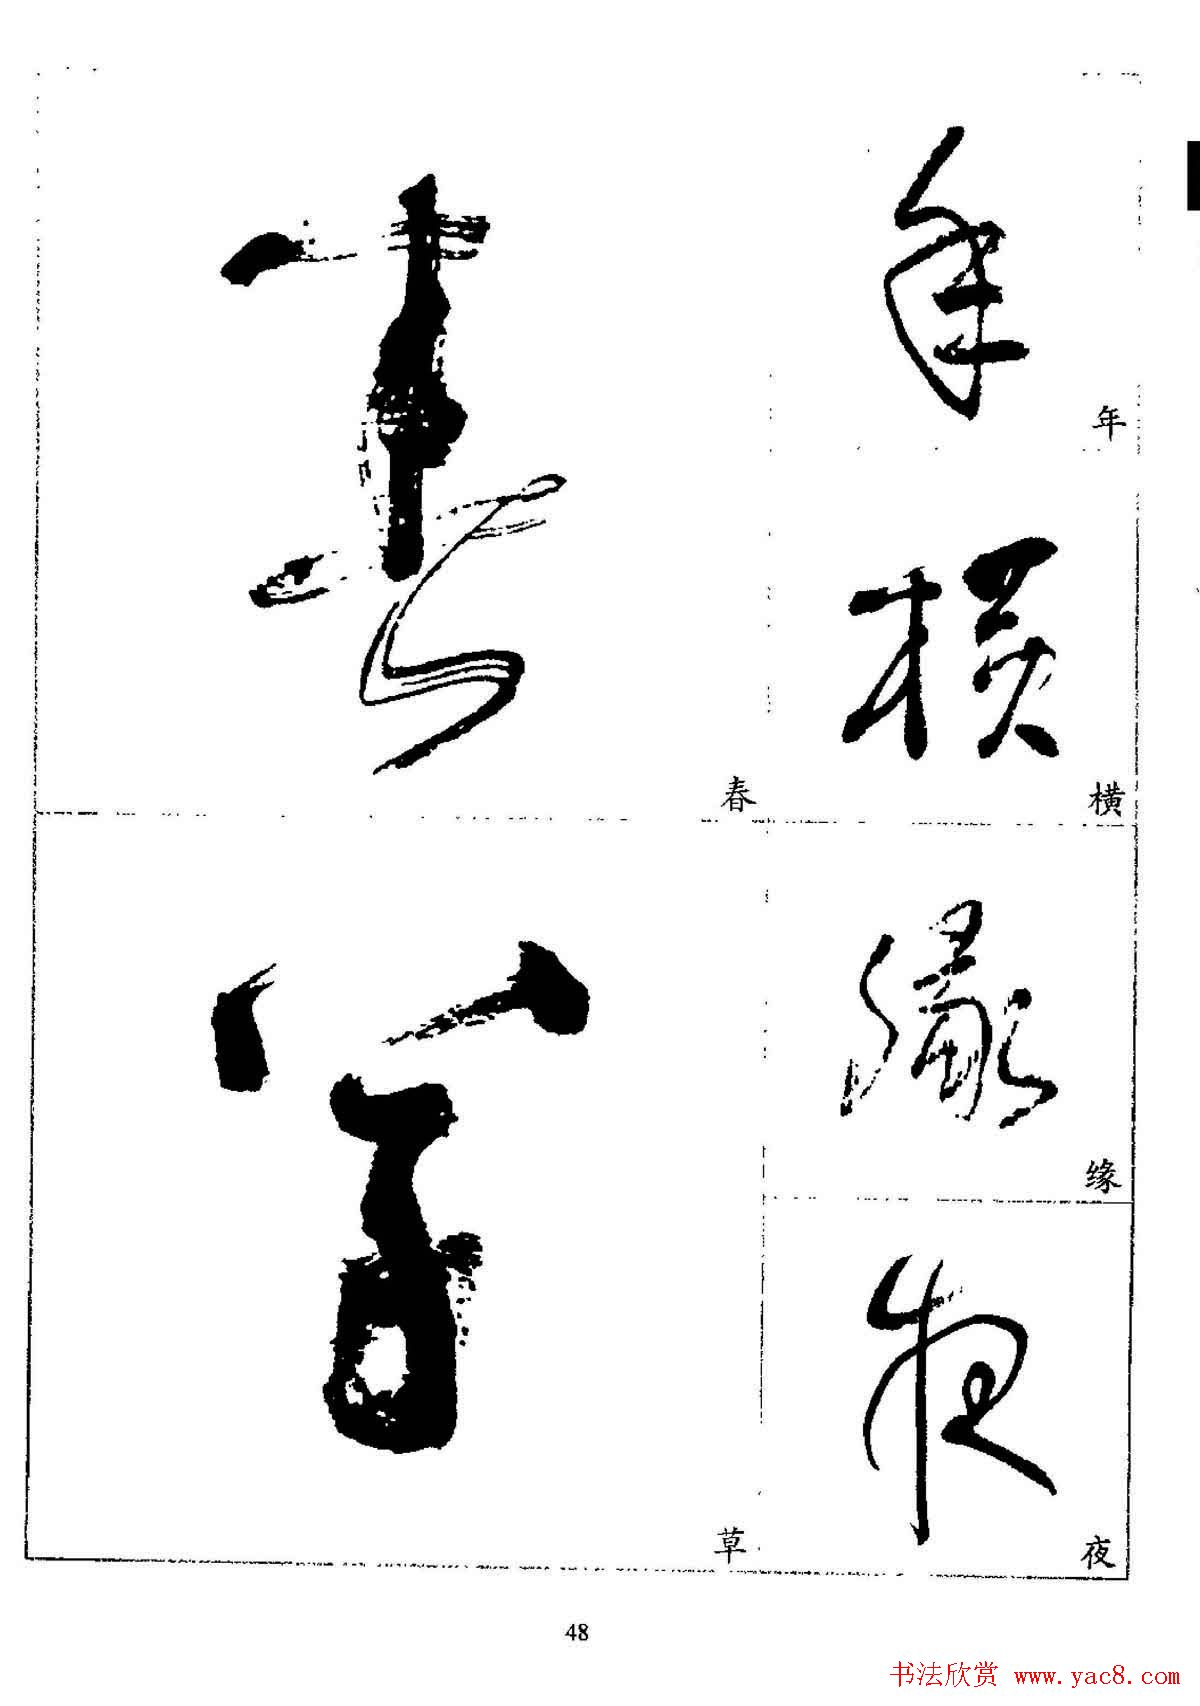 年
横
缘
夜
春
草
48
书法欣赏 www.yac8.com